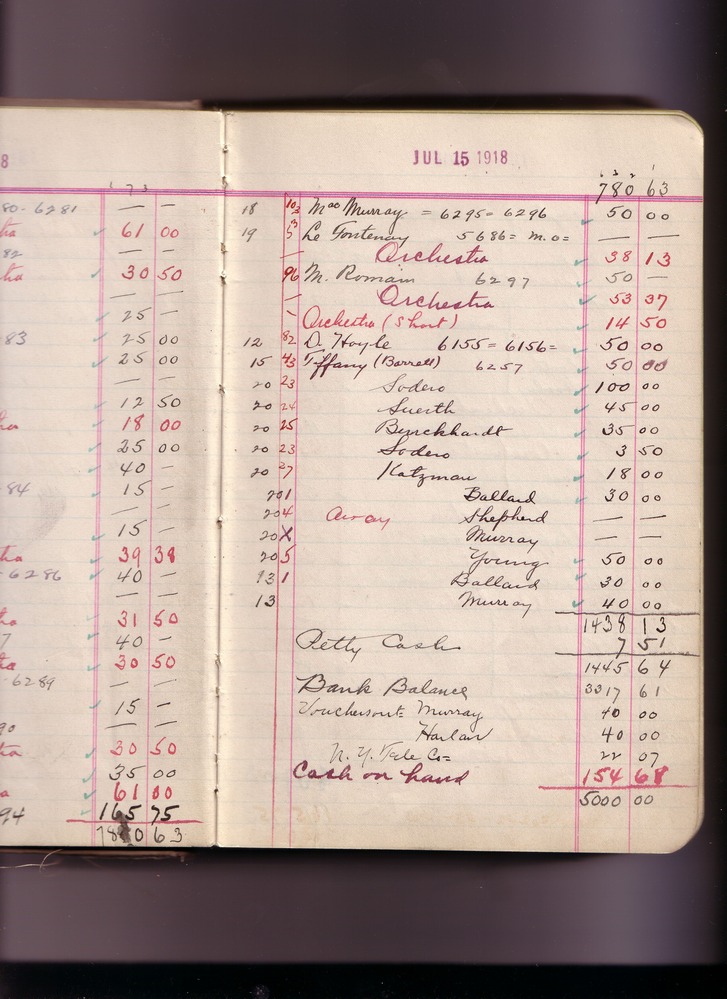 8
80-6281 — —
61 00
82 — —
30 50
— —
25 —
83 25 00
25 00
— —
12 50
18 00
25 00
40 —
84 15 —
— —
15 —
39 38
-6286 40 —
— —
31 50
7 40 —
30 50
-6289 — —
15 —
90 — —
30 50
35 00
61 00
94 165 75
780 63
JUL 15 1918
780 63
18 Mae Murray = 6295 = 6296 50 00
19 Le Fontenay 5686 = M.O = — —
— Orchestra 38 13
96 M. Romain 6297 50 —
— Orchestra 53 37
— Orchestra (Short) 14 50
12 82 D. Hoyle 6155 = 6156 = 50 00
15 43 Tiffany (Barrett) 6257 50 00
20 23 Sodero 100 00
20 24 Suerth 45 00
20 25 Burckhardt 35 00
20 23 Sodero 3 50
20 27 Katzman 18 00
20 1 Ballard 30 00
20 4 Away Shepherd — —
20 X Murray — —
20 5 Young 50 00
13 1 Ballard 30 00
13 Murray 40 00
1438 13
Petty Cash 7 51
1445 64
Bank Balance 3317 61
Vouchers out = Murray 40 00
Harlan 40 00
N.Y. Tele Co = 22 07
Cash on hand 154 68
5000 00